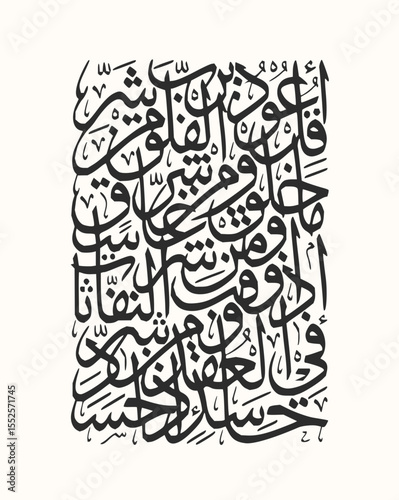 قل أعوذ برب الفلق من شر
ما خلق ومن شر غاسق
إذا وقب ومن شر النفاثات
في العقد ومن شر
حاسد إذا حسد
Adobe Stock | #1552571745